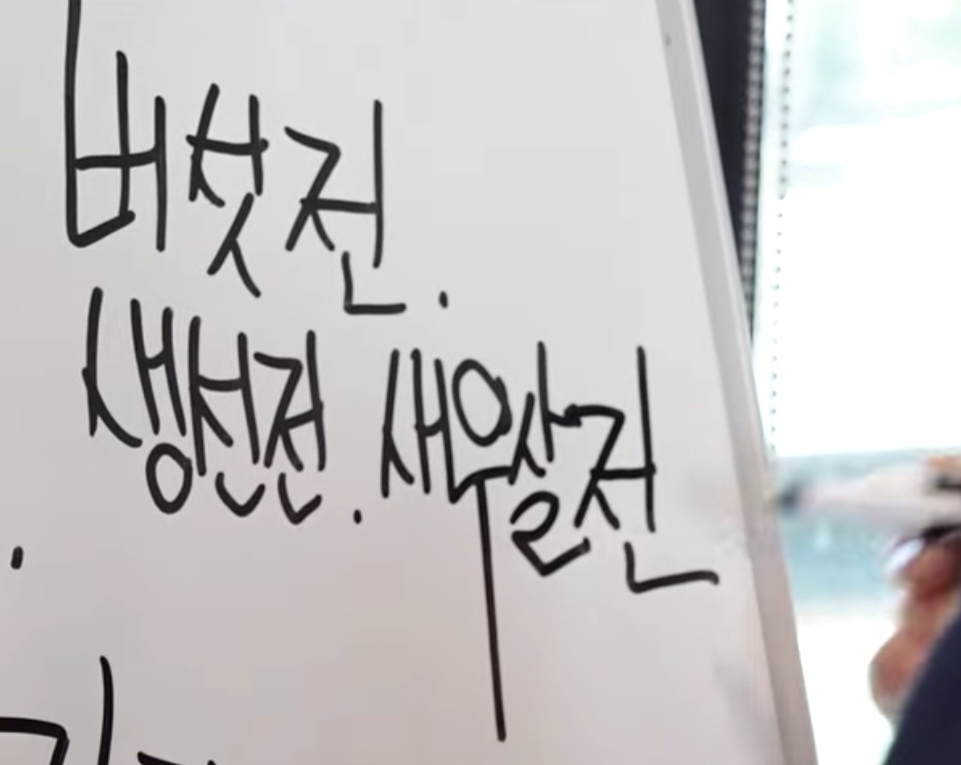 버섯전.
생선전. 새우살전